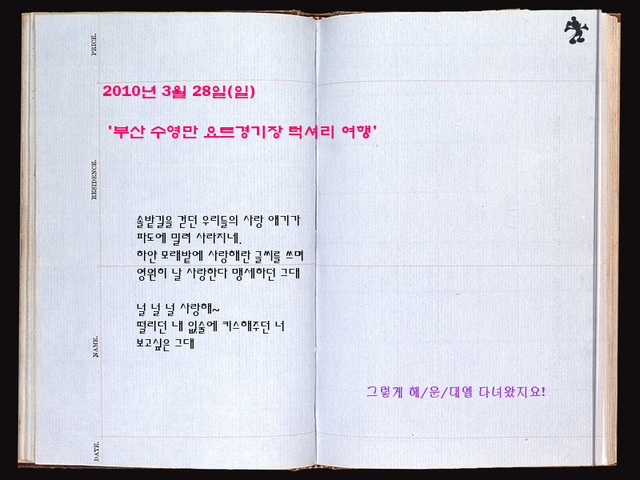 PRICE.
2010년 3월 28일(일)
'부산 수영만 요트경기장 럭셔리 여행'
RESIDENCE.
솔밭길을 걷던 우리들의 사랑 얘기가
파도에 밀려 사라지네.
하얀 모래밭에 사랑해란 글씨를 쓰며
영원히 날 사랑한다 맹세하던 그대
널 널 널 사랑해~
떨리던 내 입술에 키스해주던 너
보고싶은 그대
NAME.
그렇게 해/운/대엘 다녀왔지요!
DATE.